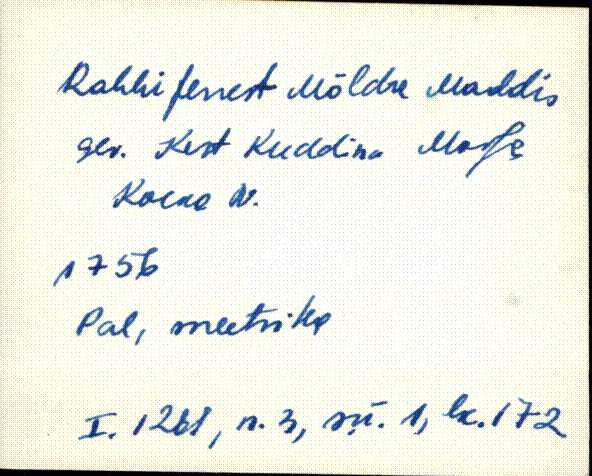 Rahhifennest Möldre Maddis
gev. Kert Kuddina
Koera N.
1756
Pal, meetrika
I. 1261, n. 3, sü. 1, lk. 172